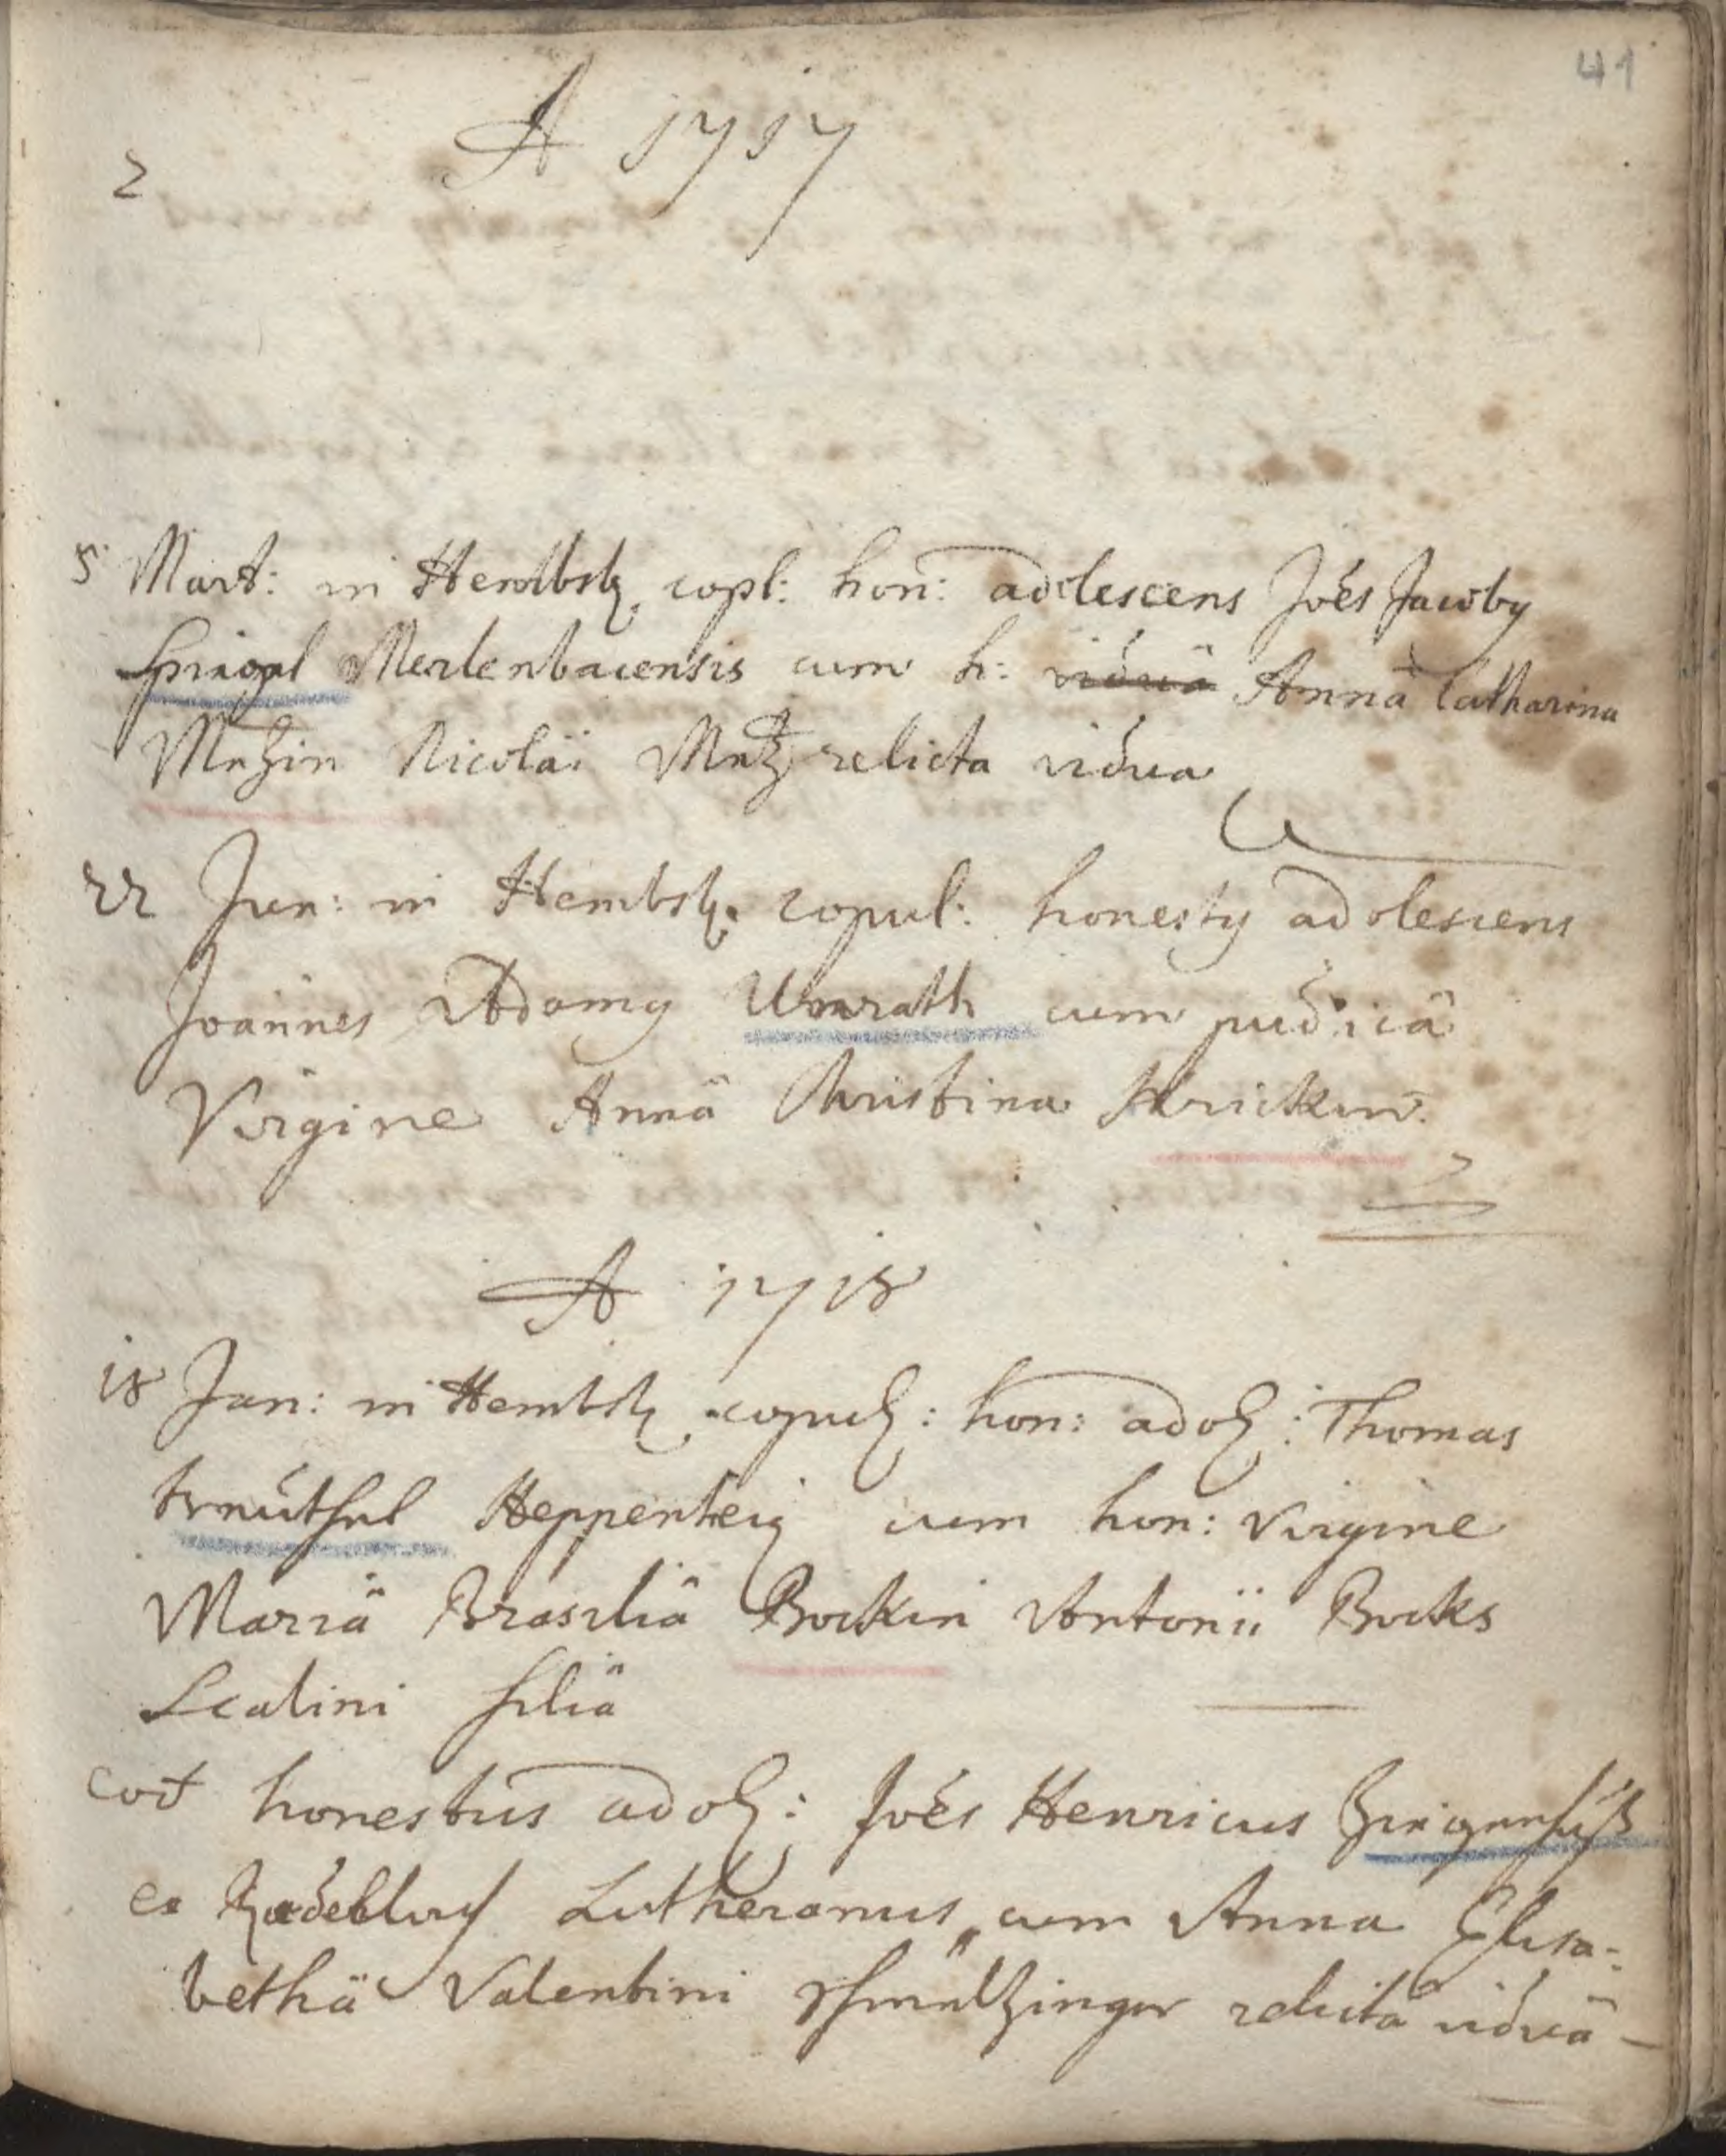 41
A 1717
2
5 Mart: in Hembsb. copl: hon: adolescens Joës Jacoby
Spiegel Merlenbacensis cum h: viduâ Annâ Catharina
Mezin Nicolai Metz relicta vidua
22 Jun: in Hembsb. copul: honesty adolescens
Joannes Adamy Umrath cum pudicâ
Virgine Annâ Christina
A 1718
18 Jan: in Hembsb. copul: hon: adol: Thomas
treutsel Heppenheig cum hon: Virgine
Mariâ Brasiliâ Bockin Antonii Bocks
Scabini filiâ
eod honestus adol: Joës Henricus Ziegenfuß
ex Lutheranus, cum Anna Elisa-
bethâ Valentini relictâ viduâ